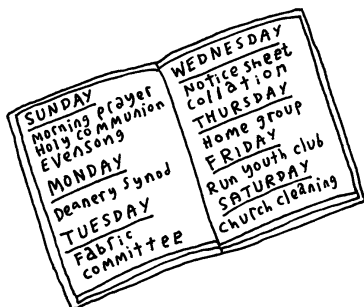 SUNDAY
Morning prayer
Holy communion
Evensong
MONDAY
Deanery synod
TUESDAY
Fabric
committee
WEDNESDAY
Notice sheet
collation
THURSDAY
Home group
FRIDAY
Run youth club
SATURDAY
Church cleaning